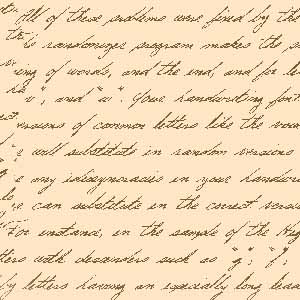 All of these problems were fixed by the
randomizer program makes the
of words, and the end, and for
", and "u". Your handwriting font
versions of common letters like the
e will substitute in random versions
e any idiosyncracies in your
e can substitute in the correct
For instance, in the sample of the
with descenders such as "g", "f",
letters having an especially long